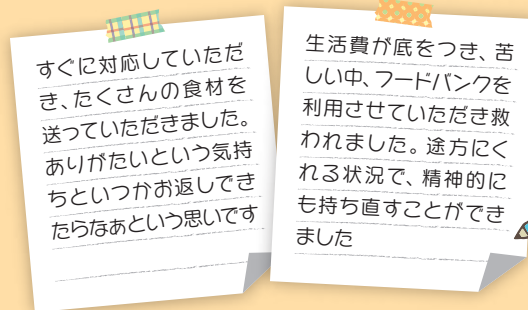 すぐに対応していただ
き、たくさんの食材を
送っていただきました。
ありがたいという気持
ちといつかお返しでき
たらなぁという思いです
生活費が底をつき、苦
しい中、フードバンクを
利用させていただき救
われました。途方にく
れる状況で、精神的に
も持ち直すことができ
ました